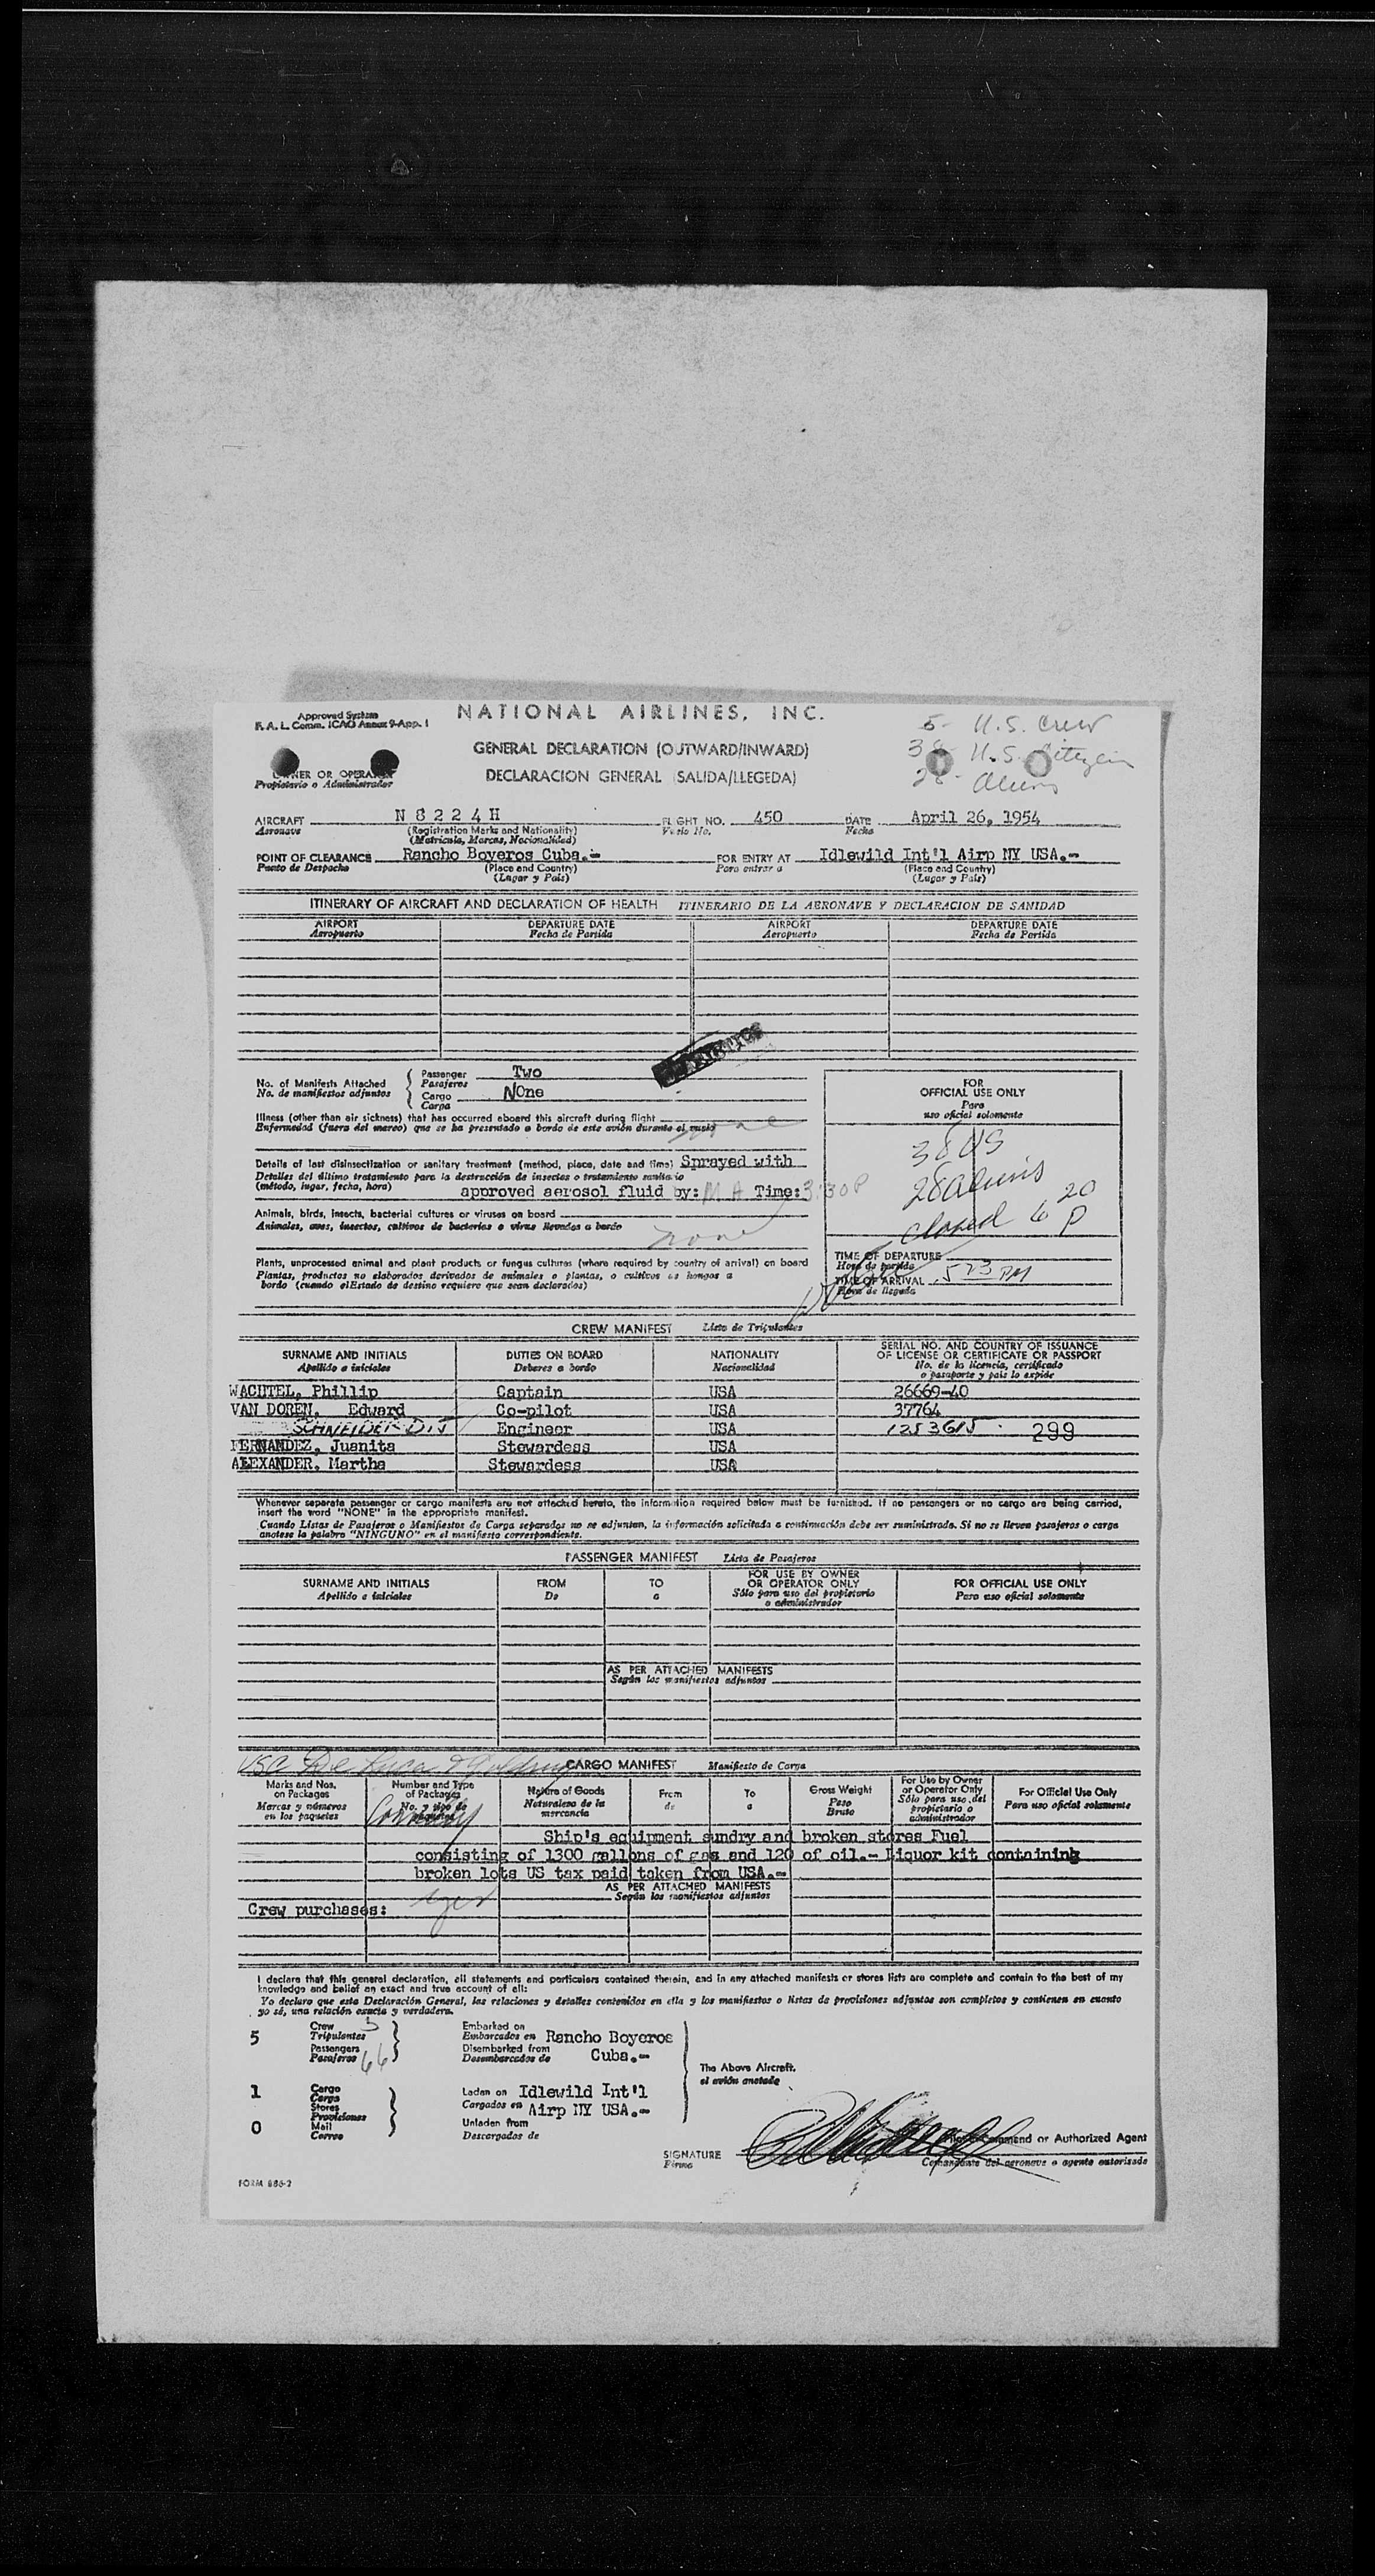 Approved System
F.A.L. Comm. ICAO Annex 9-App. 1
NATIONAL AIRLINES, INC.
5- U.S. Crew
38 U.S. Citizen
28- Aliens
GENERAL DECLARATION (OUTWARD/INWARD)
DECLARACION GENERAL (SALIDA/LLEGEDA)
OWNER OR OPERATOR
Propietario o Administrador
AIRCRAFT N 8 2 2 4 H FLIGHT NO. 450 DATE April 26, 1954
Aeronave (Registration Marks and Nationality) Vuelo No. Fecha
(Matricula, Marcas, Nacionalidad)
POINT OF CLEARANCE Rancho Boyeros Cuba.- FOR ENTRY AT Idlewild Int'l Airp NY USA.-
Punto de Despacho (Place and Country) Para entrar a (Place and Country)
(Lugar y País) (Lugar y País)
ITINERARY OF AIRCRAFT AND DECLARATION OF HEALTH ITINERARIO DE LA AERONAVE Y DECLARACION DE SANIDAD
AIRPORT DEPARTURE DATE AIRPORT DEPARTURE DATE
Aeropuerto Fecha de Partida Aeropuerto Fecha de Partida
No. of Manifests Attached Passenger Two
No. de manifiestos adjuntos Pasajeros
Cargo NOne
Carga
FOR
OFFICIAL USE ONLY
Para
uso oficial solamente
Illness (other than air sickness) that has occurred aboard this aircraft during flight
Enfermedad (fuera del mareo) que se ha presentado a bordo de este avión durante el vuelo none
38 US
28 aliens
closed 6 20 P
Details of last disinsectization or sanitary treatment (method, place, date and time) Sprayed with
Detalles del último tratamiento para la destrucción de insectos o tratamiento sanitario
(método, lugar, fecha, hora) approved aerosol fluid by: M A Time: 3:30P
Animals, birds, insects, bacterial cultures or viruses on board
Animales, aves, insectos, cultivos de bacterias o virus llevados a bordo
none
Plants, unprocessed animal and plant products or fungus cultures (where required by country of arrival) on board
Plantas, productos no elaborados derivados de animales o plantas, o cultivos de hongos a
bordo (cuando el Estado de destino requiere que sean declarados)
TIME OF DEPARTURE
Hora de partida
TIME OF ARRIVAL 523 PM
Hora de llegada
CREW MANIFEST Lista de Tripulantes
SURNAME AND INITIALS DUTIES ON BOARD NATIONALITY SERIAL NO. AND COUNTRY OF ISSUANCE
OF LICENSE OR CERTIFICATE OR PASSPORT
Apellido e iniciales Deberes a bordo Nacionalidad No. de la licencia, certificado
o pasaporte y país lo expide
WACHTEL, Phillip Captain USA 26669-40
VAN DOREN, Edward Co-pilot USA 37764
SCHNEIDER D.J Engineer USA 1253615 299
FERNANDEZ, Juanita Stewardess USA
ALEXANDER, Martha Stewardess USA
Whenever separate passenger or cargo manifests are not attached hereto, the information required below must be furnished. If no passengers or no cargo are being carried,
insert the word "NONE" in the appropriate manifest.
Cuando Listas de Pasajeros o Manifiestos de Carga separados no se adjuntan, la información solicitada a continuación debe ser suministrada. Si no se lleven pasajeros o carga
anotese la palabra "NINGUNO" en el manifiesto correspondiente.
PASSENGER MANIFEST Lista de Pasajeros
SURNAME AND INITIALS FROM TO FOR USE BY OWNER
OR OPERATOR ONLY FOR OFFICIAL USE ONLY
Apellido e iniciales De a Sólo para uso del propietario
o administrador Para uso oficial solamente
AS PER ATTACHED MANIFESTS
Según los manifiestos adjuntos
CARGO MANIFEST Manifiesto de Carga
Marks and Nos.
on Packages
Marcas y números
en los paquetes
Number and Type
of Packages
No. y tipo de
paquetes
Nature of Goods
Naturaleza de la
mercancia
From
de
To
a
Gross Weight
Peso
Bruto
For Use by Owner
or Operator Only
Sólo para uso del
propietario o
administrador
For Official Use Only
Para uso oficial solamente
Ship's equipment sundry and broken stores Fuel
consisting of 1300 gallons of gas and 120 of oil.- Liquor kit containing
broken lots US tax paid taken from USA.-
AS PER ATTACHED MANIFESTS
Según los manifiestos adjuntos
Crew purchases:
I declare that this general declaration, all statements and particulars contained therein, and in any attached manifests or stores lists are complete and contain to the best of my
knowledge and belief an exact and true account of all:
Yo declaro que esta Declaración General, las relaciones y detalles contenidos en ella y los manifiestos o listas de provisiones adjuntos son completos y contienen en cuanto
yo sé, una relación exacta y verdadera.
5 Crew 5
Tripulantes
Passengers
Pasajeros 66
Embarked on
Embarcados en Rancho Boyeros
Disembarked from
Desembarcados de Cuba.-
The Above Aircraft.
el avión anotado
1 Cargo
Carga
Stores
Provisiones
0 Mail
Correo
Laden on Idlewild Int'l
Cargados en Airp NY USA.-
Unladen from
Descargados de
SIGNATURE
Firma
Pilot in Command or Authorized Agent
Comandante del aeronave o agente autorizado
FORM 886-2